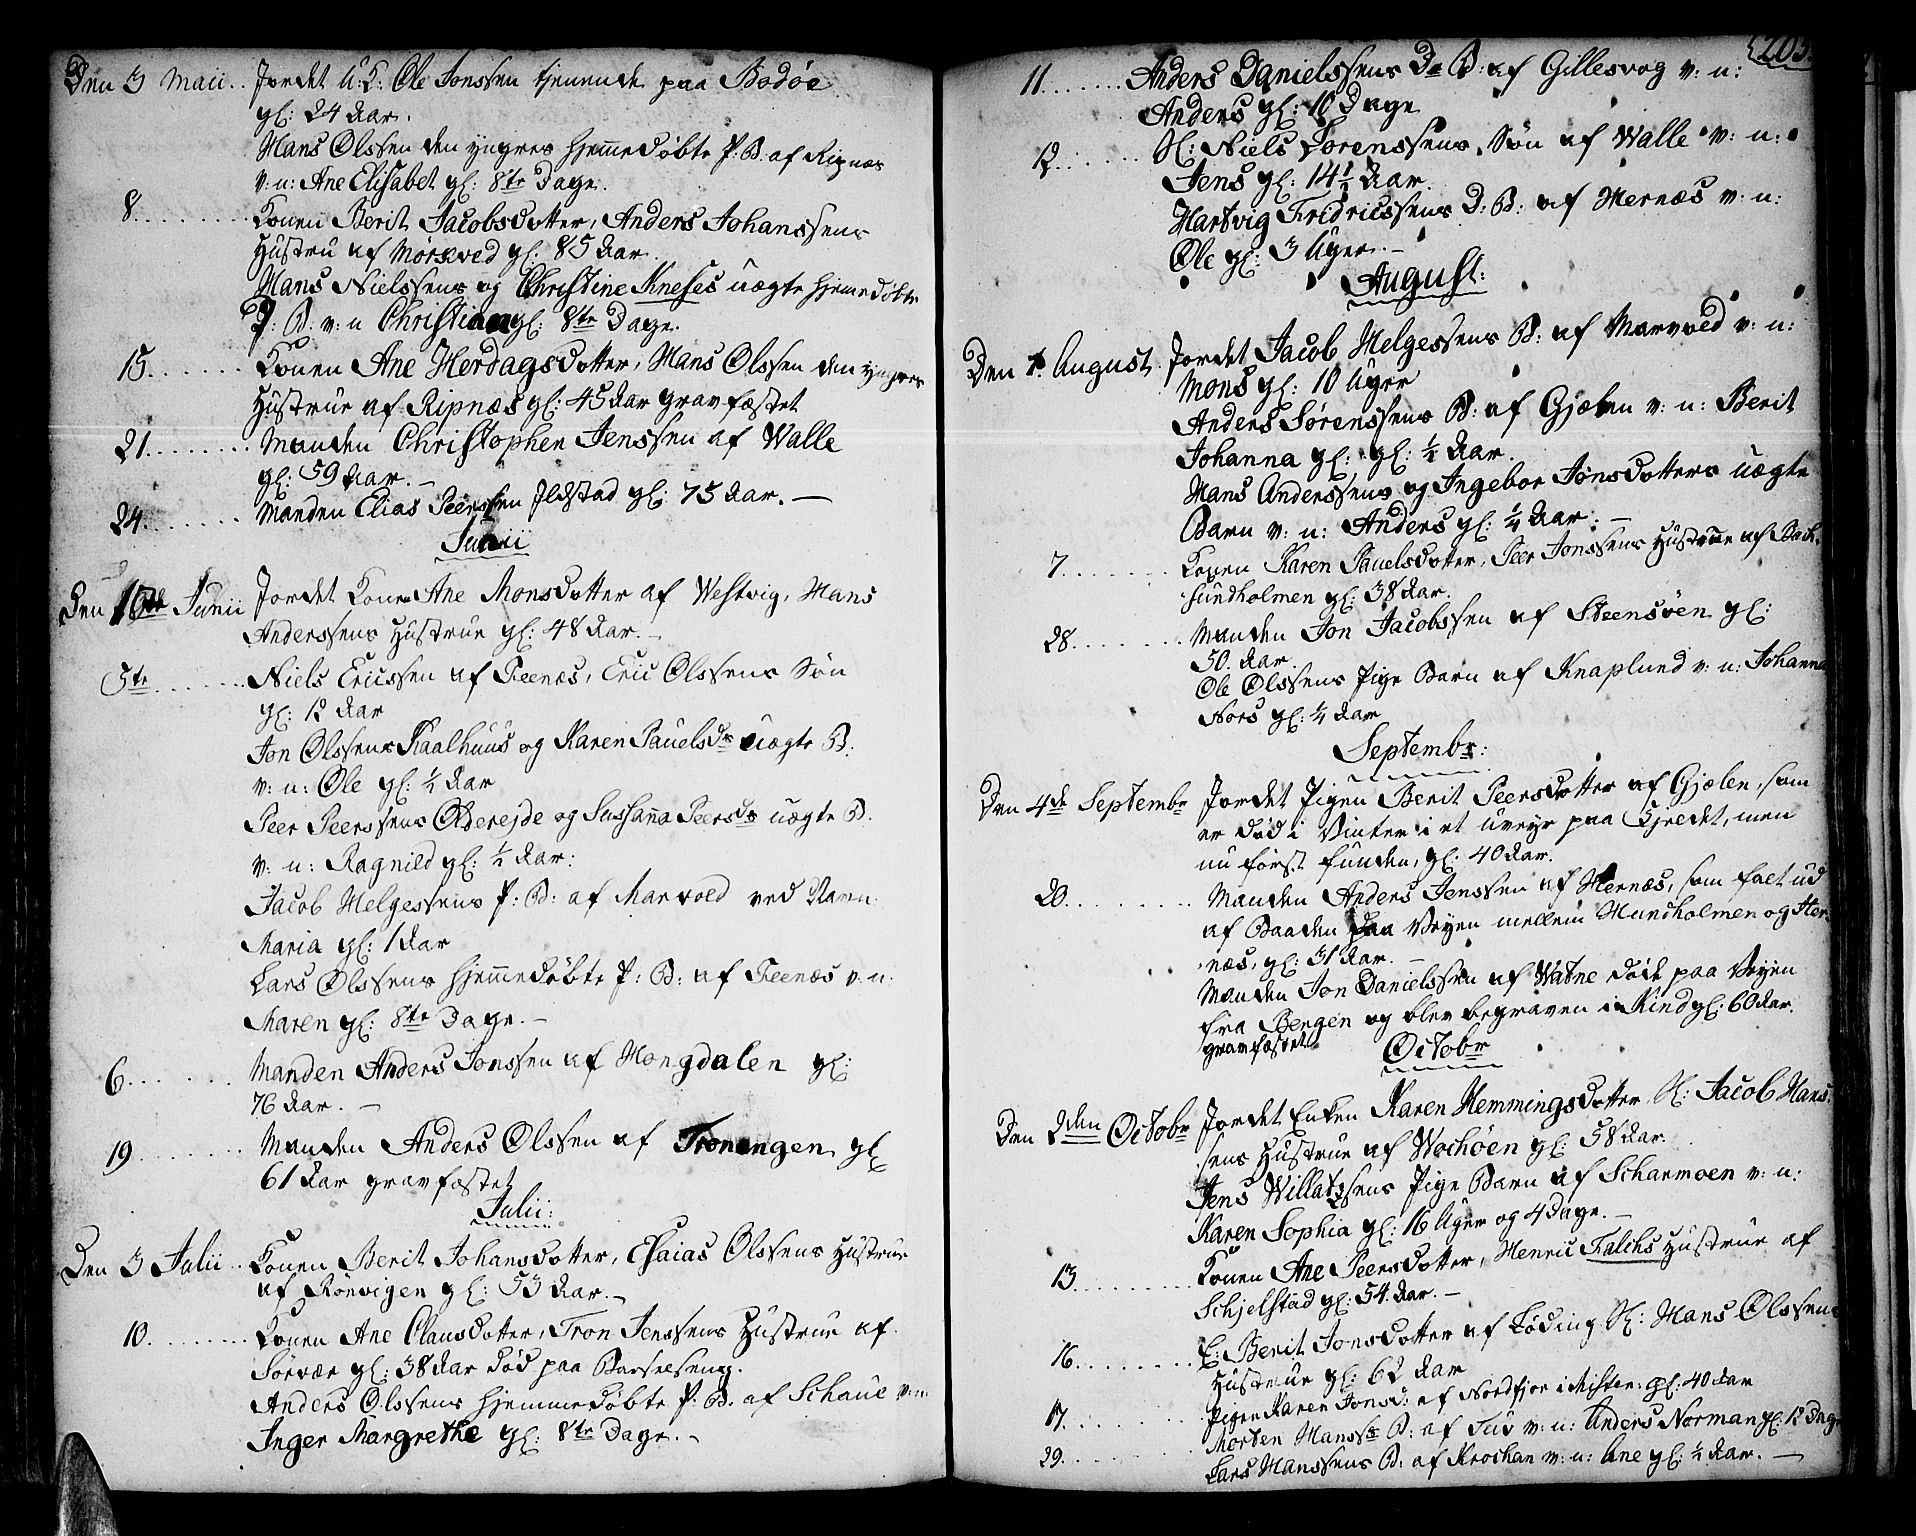 Den 3 Maii.. Jordet U: K: Ole Jonssen tjenende paa Bodøe
gl: 24 Aar.
Hans Olssen den yngres hjemmedøbte P: B. af Ripnæs
v: n: Ane Elisabet gl: 8te Dage.
8......... Konen Berit Jacobsdotter, Anders Johanssens
Hustru af Mørkved gl: 85 Aar.
Hans Nielssens og Christine Kneses uægte hjemmedøbte
D: B: v: n Christian gl: 8te Dage.
15........ Konen Ane Herdagsdotter, Hans Olssen den yngres
Hustrue af Ripnæs gl: 45 Aar gravfæstet
21........ Manden Christophen Jenssen af Walle
gl: 59 Aar. —
24....... Manden Elias Peerssen Ildstad gl: 75 Aar. —
Junii
Den 1ste Junii Jordet Konen Ane Monsdotter af Westvig, Hans
Anderssens Hustrue gl: 48 Aar. —
5te....... Niels Ericssen af Seenæs, Eric Olssens Søn
gl: 12 Aar
Jon Olssens Kaalhuus og Karen Pauelsdr uægte B.
v: n: Ole gl: ½ Aar
Peer Peerssens Olderejde og Sussanna Peersdr uægte B.
v: n: Ragnild gl: ½ Aar:
Jacob Helgessens P: B: af Marvold ved Navn
Maria gl: 1 Aar
Lars Olssens hjemmedøbte P: B: af Seenæs v: n:
Maren gl: 8te Dage. —
6........ Manden Anders Jonssen af Hongdalen gl:
76 Aar. —
19........ Manden Anders Olssen af Tronengen gl
61 Aar gravfæstet
Julii:
Den 3 Julii.. Konen Berit Johansdotter, Esaias Olssens Hustrue
af Rönvigen gl: 53 Aar. —
10........ Konen Ane Clausdotter, Tron Jenssens Hustrue af
Sörvær gl: 38 Aar død paa Barselseng.
Anders Olssens hjemmedøbte P: B. af Schaue v: n:
Inger Margrethe gl: 8te Dage. —
203.
11....... Anders Danielssens D: B: af Gillesvog v: n:
Anders gl: 10 Dage
12....... Sl: Niels Lorenssens Søn af Walle v: n:
Jens gl: 14½ Aar.
Hartvig Fridricssens D: B: af Hernæs v: n:
Ole gl: 3 Uger. —
August:
Den 1. August. Jordet Jacob Helgessens B: af Marvold v: n:
Mons gl: 10 Uger
Anders Sørenssens B: af Gjælen v: n: Berit
Johanna gl: gl: ½ Aar.
Hans Anderssens og Ingebor Jonsdotters uægte
Barn v: n: Anders gl: ¼ Aar. —
7........ Konen Karen Pauelsdotter, Peer Jonssens Hustrue af Bach-
sundholmen gl: 38 Aar.
28........ Manden Jon Jacobssen af Steensøen gl:
50. Aar.
Ole Olssens Pige Barn af Knaplund v: n: Johanna
Nors gl: ¼ Aar
Septembr:
Den 4de Septembr Jordet Pigen Berit Peersdotter af Gjælen, som
er død i Vinter i et Uveyr paa Fjeldet, men
nu først funden, gl: 40 Aar.
20........ Manden Anders Jenssen af Hernæs, som falt ud
af Baaden paa Veyen mellem Hundholmen og Her-
næs, gl: 31 Aar. —
Manden Jon Danielssen af Watne døde paa Veyen
fra Bergen og blev begraven i Rind gl: 60 Aar.
gravfæstet
Octobr
Den 2den Octobr Jordet Enken Karen Hemmingsdotter Sl: Jacob Hans-
sens Hustrue af Wochöen gl: 58 Aar.
Jens Willatzsens Pige Barn af Scharmoen v: n:
Karen Sophia gl: 16 Uger og 4 Dage. —
13........ Konen Ane Peersdotter, Henric Falchs Hustrue af
Schjelstad gl: 54 Aar. —
16........ E: Berit Jonsdotter af Löding Sl: Hans Olssens
Hustrue gl: 62 Aar
17........ Pigen Karen Jonsd: af Nordfjor i Misten: gl: 40 Aar
Morten Hanss: B: af Tuv v: n: Anders Norman gl: 12 Dage
29....... Lars Hanssens B: af Krochan v: n: Ane gl: ½ Aar. —